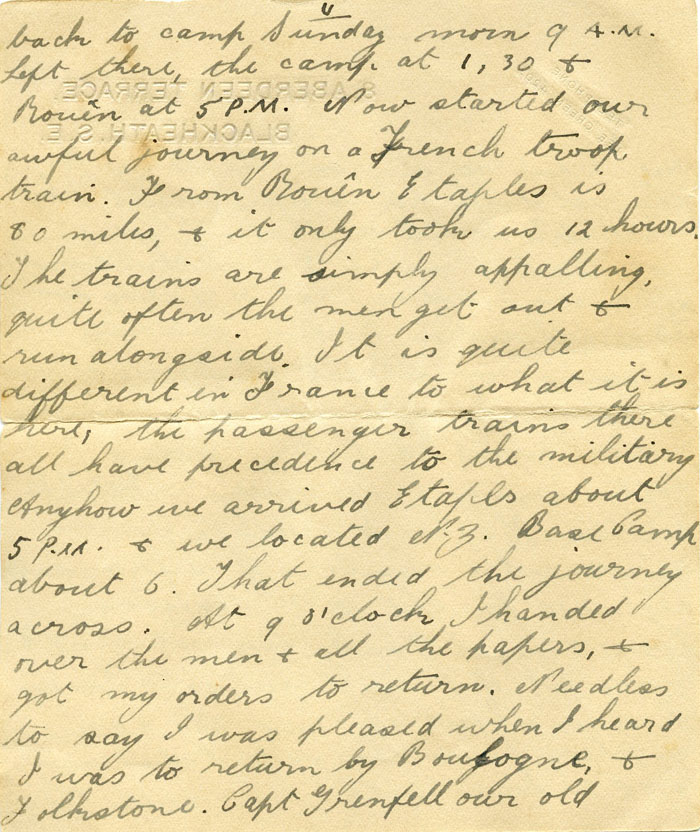 back to camp Sunday morn 9 A.M.
Left there, the camp at 1,30 &
Rouên at 5 P.M. Now started our
awful journey on a French troop
train. From Rouên Etaples is
80 miles, & it only took us 12 hours.
The trains are simply appalling,
quite often the men get out &
run alongside. It is quite
different in France to what it is
here, the passenger trains there
all have precedence to the military
Anyhow we arrived Etapls about
5 P.M. & we located N.Z. Base Camp
about 6. That ended the journey
across. At 9 o'clock I handed
over the men & all the papers, &
got my orders to return. Needless
to say I was pleased when I heard
I was to return by Boulogne, &
Folkstone. Capt Grenfell our old
8 ABERDEEN TERRACE.
BLACKHEATH. S.E.